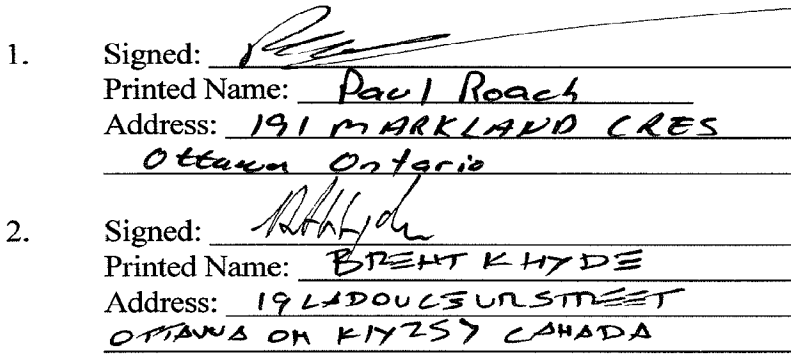 1. Signed:
Printed Name: Paul Roach
Address: 191 MARKLAND CRES
Ottawa Ontario
2. Signed:
Printed Name: BRENT K HYDE
Address: 19 LADOUCEUR STREET
OTTAWA ON K1Y2S7 CANADA